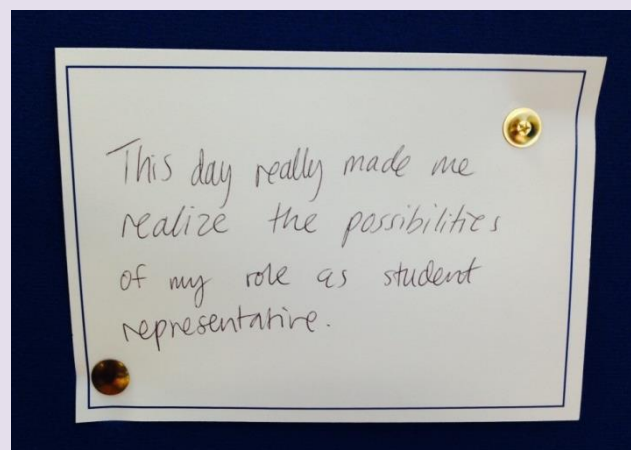 This day really made me
realize the possibilities
of my role as student
representative.